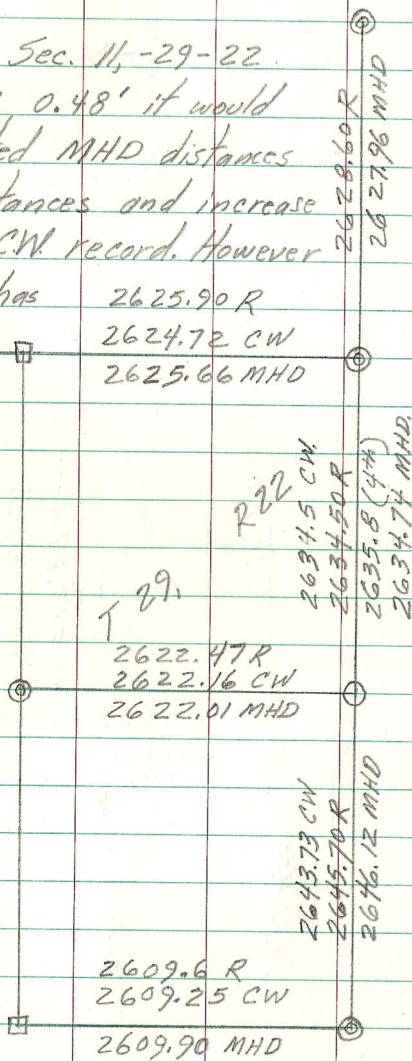 Sec. 11, -29-22
0.48' it would
ed MHD distances
tances and increase
CW. record. However
has
2628.60 R
2627.96 MHD
2625.90 R
2624.72 CW
2625.66 MHD
T 29,
R 22
2634.5 CW.
2634.50 R
2635.8 (4th)
2634.74 MHD.
2622.47 R
2622.16 CW
2622.01 MHD
2643.73 CW
2645.70 R
2646.12 MHD
2609.6 R
2609.25 CW
2609.90 MHD